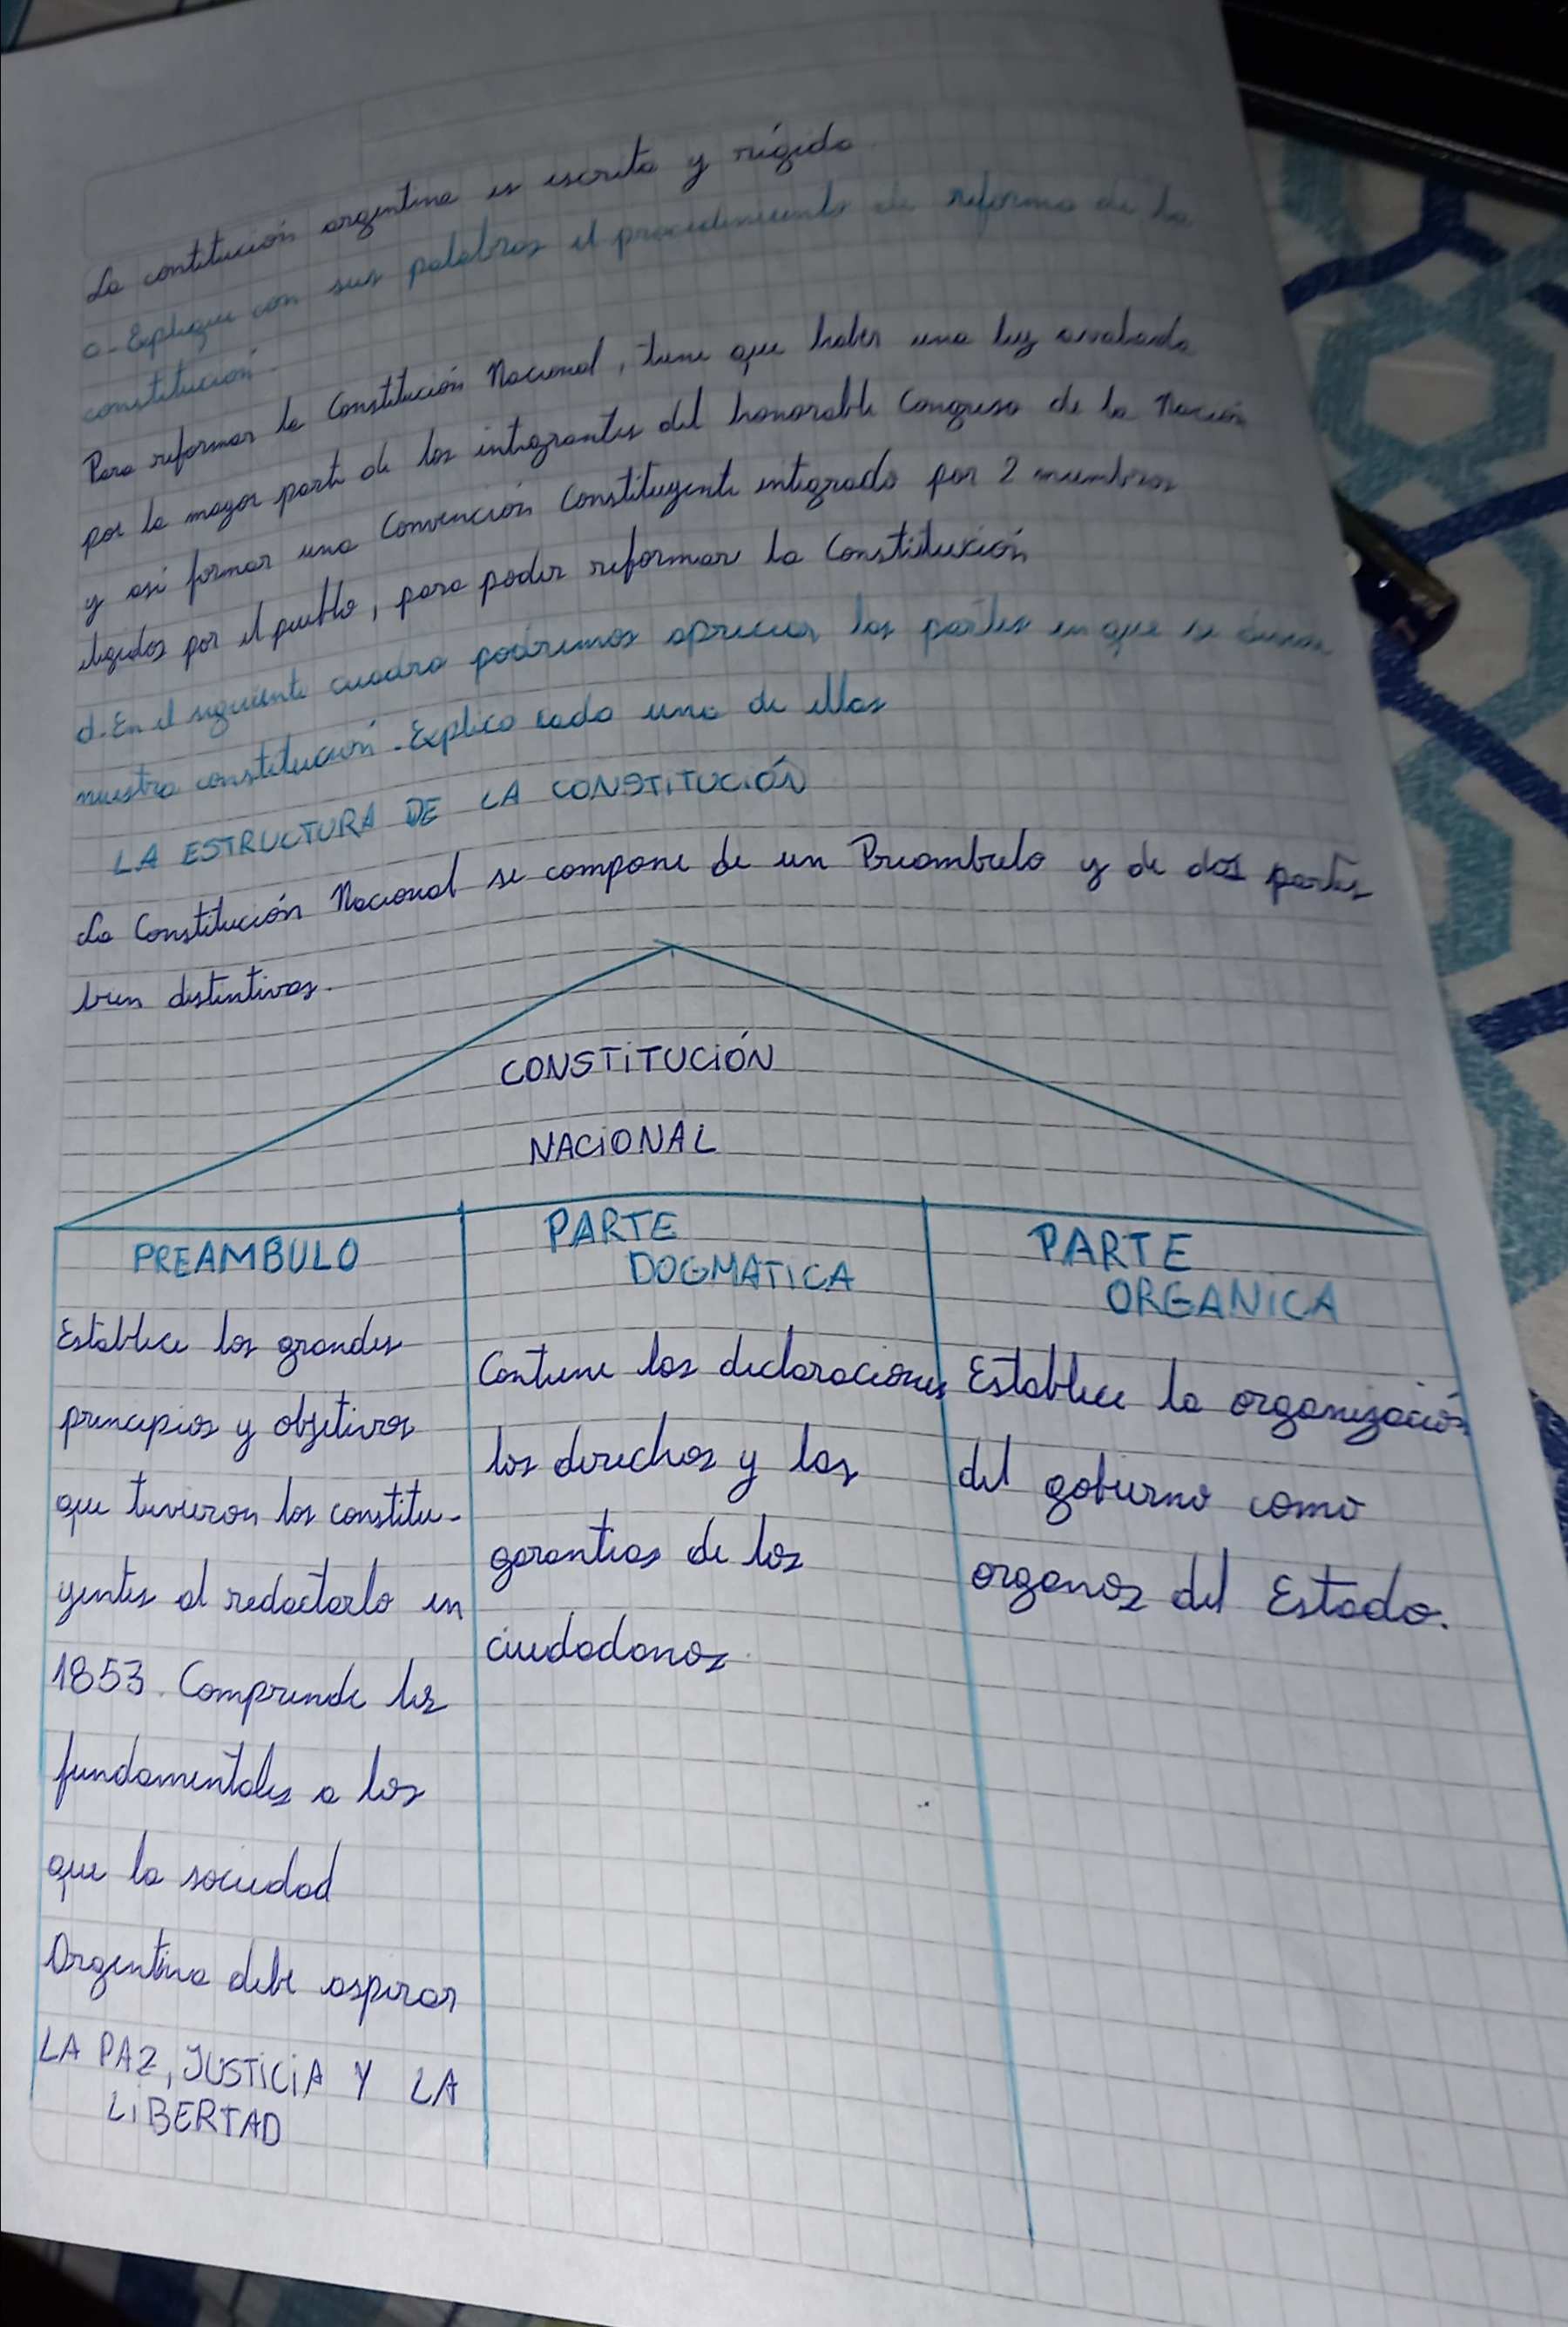 La contitución argentina es escrita y rígida.
c- Explique con sus palabras el procedimiento de reforma de la
constitución.
Para reformar la Constitución Nacional, tiene que haber una ley avalada
por la mayor parte de los integrantes del honorable Congreso de la Nación
y así formar una Convención Constituyente integrado por 2 miembros
elegidos por el pueblo, para poder reformar la Constitución
d- En el siguiente cuadro podremos apreciar las partes en que se
nuestra constitución. Explico cada una de ellas
LA ESTRUCTURA DE LA CONSTITUCIÓN
La Constitución Nacional se compone de un Preambulo y de dos partes
bien distintivas.
CONSTITUCIÓN
NACIONAL
PREAMBULO
Establece los grandes
principios y objetivos
que tuvieron los constitu-
yentes al redactarlo en
1853. Comprende los
fundamentales a los
que la sociedad
Argentina debe aspirar
LA PAZ, JUSTICIA Y LA
LIBERTAD
PARTE
DOGMATICA
Contiene las declaraciones
los derechos y las
garantias de los
ciudadanos.
PARTE
ORGANICA
Establece la organización
del gobierno como
organos del Estado.